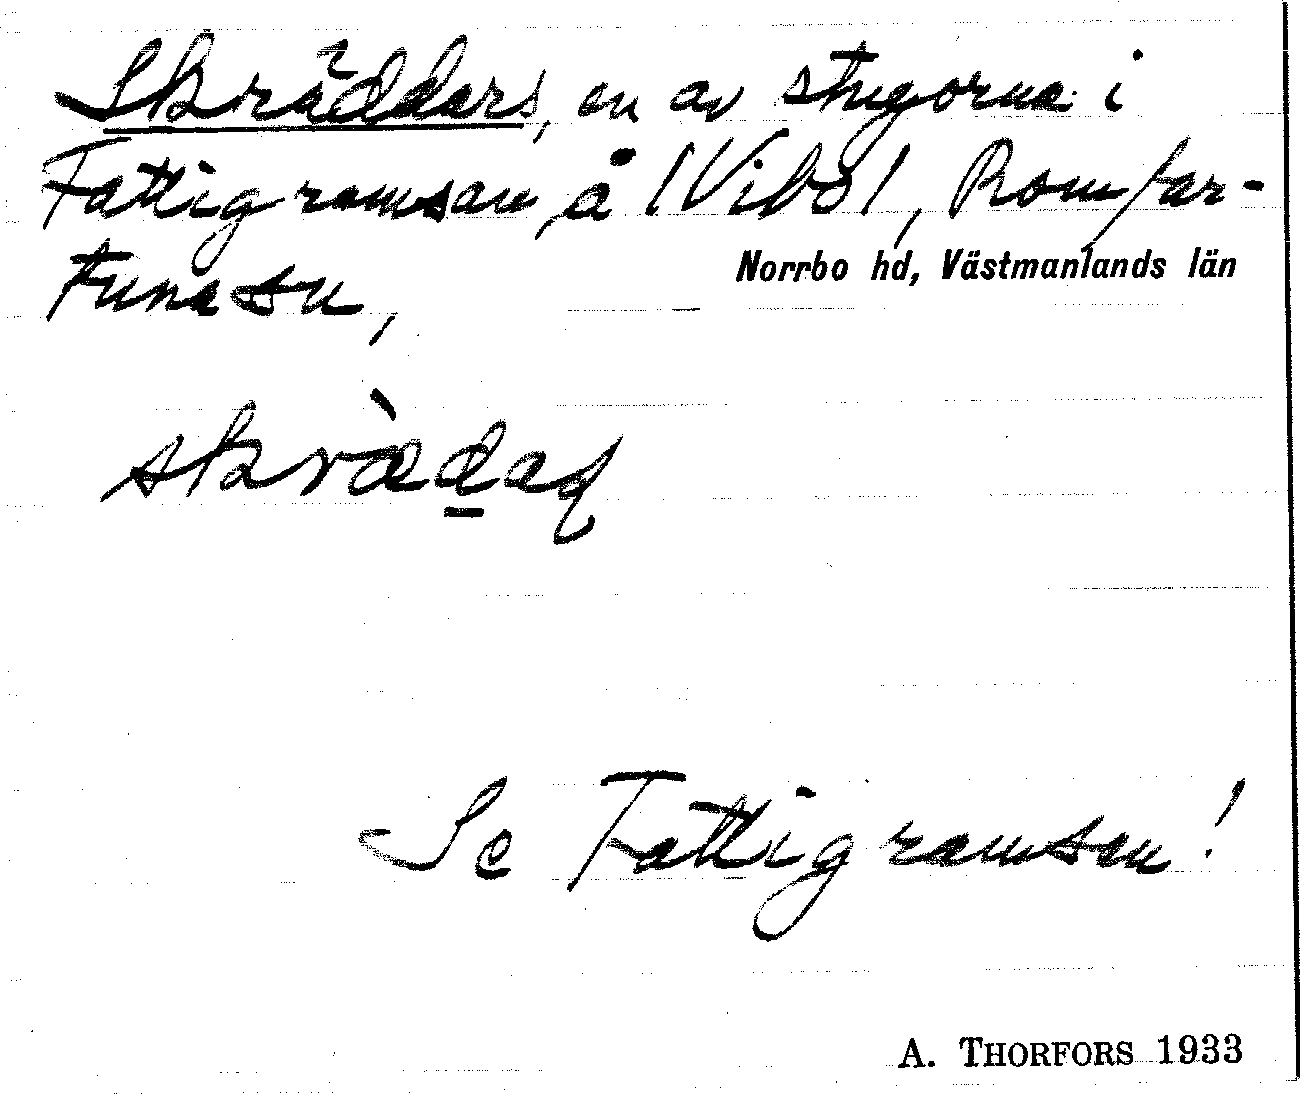 Skrädders, en av stugorna i
Fattigramsan å /Vibo/, Romfar-
tuna sn,
Norrbo hd, Västmanlands län
skrædaʂ
Se Fattigramsan!
A. THORFORS 1933